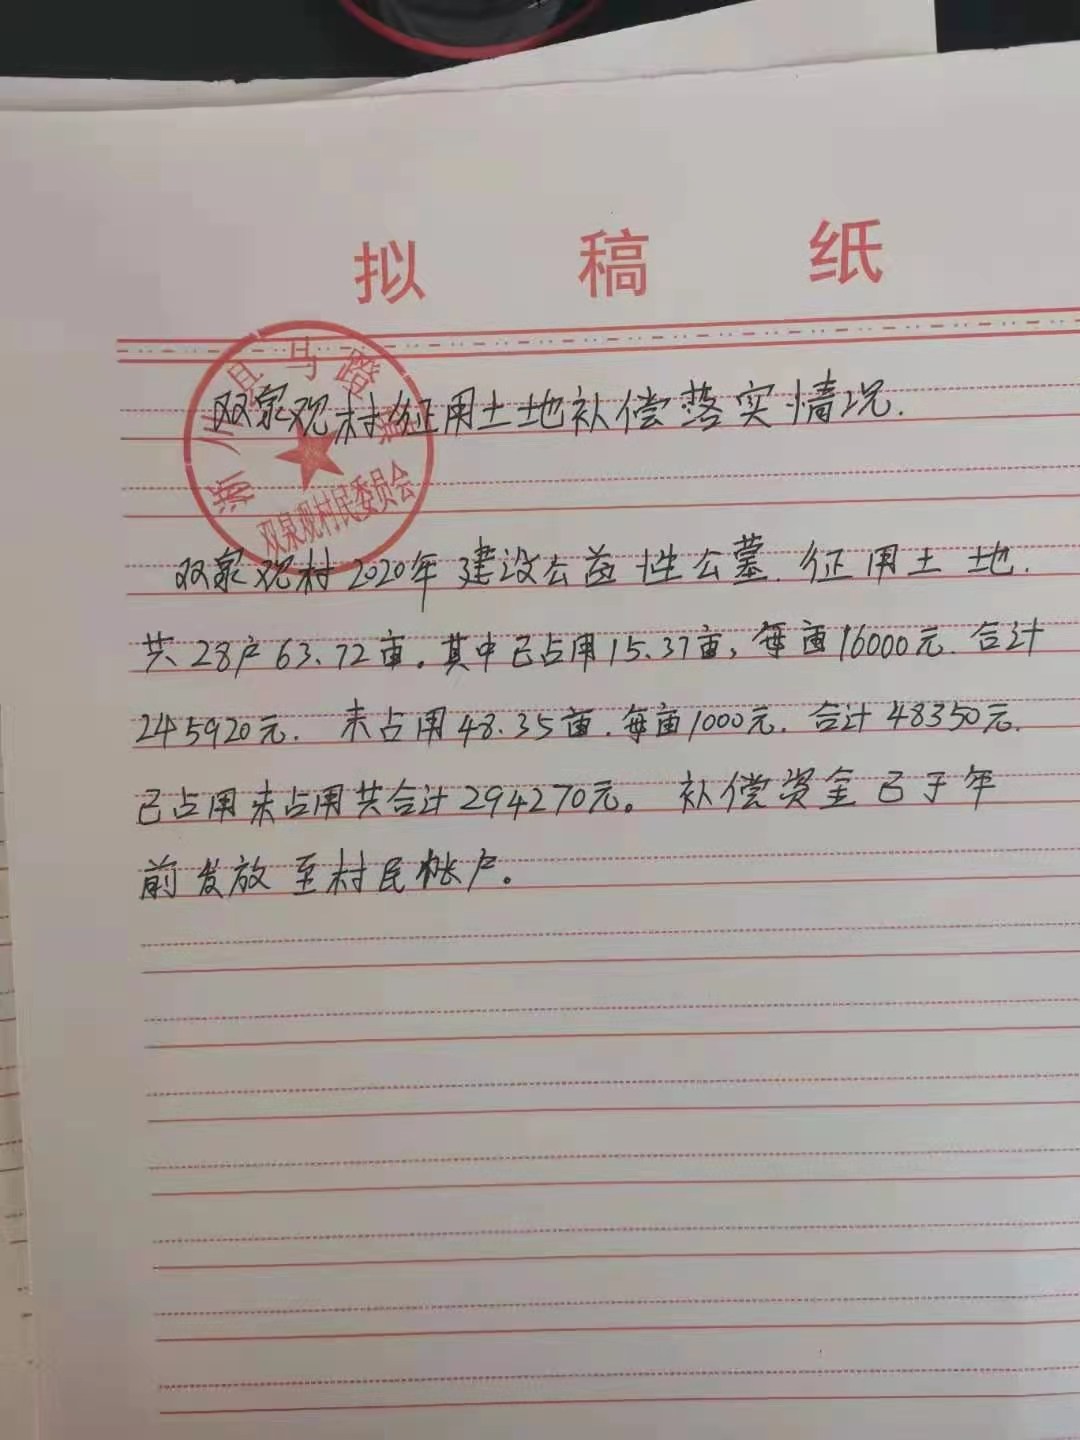 拟稿纸
淅川县马蹬镇
双泉观村民委员会
双泉观村征用土地补偿落实情况.
双泉观村2020年建设公益性公墓.征用土地.
共28户63.72亩。其中已占用15.37亩,每亩16000元.合计
245920元.未占用48.35亩.每亩1000元.合计48350元.
已占用未占用共合计294270元。补偿资金已于年
前发放至村民帐户。